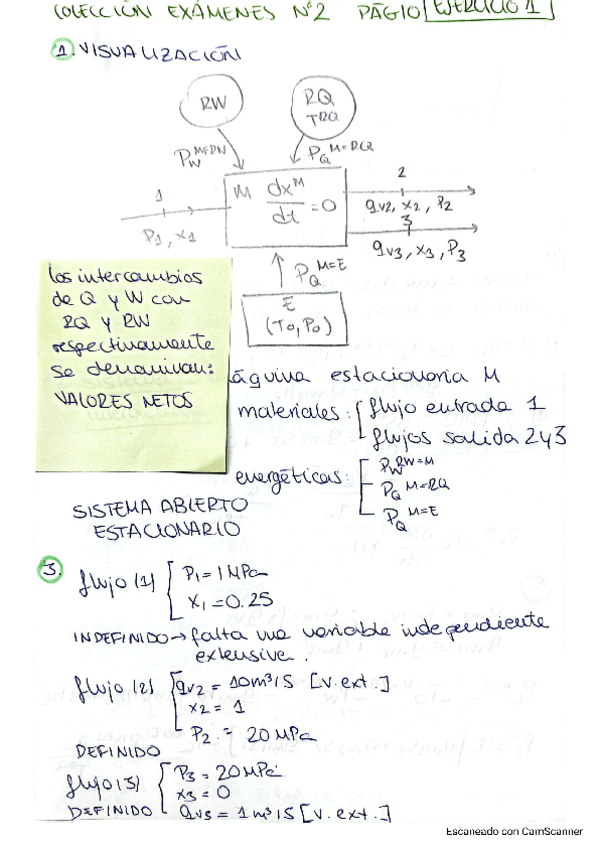 COLECCIÓN EXÁMENES Nº2 PÁG10 EJERCICIO 1
1. VISUALIZACIÓN
RW
RQ
TRQ
PW M=RW
PQ M=RQ
1
P1, x1
M dxM/dt = 0
2
qv2, x2, P2
3
qv3, x3, P3
PQ M=E
E
(T0, P0)
los intercambios
de Q y W con
RQ y RW
respectivamente
se denominan:
VALORES NETOS
áquina estacionaria M
materiales: flujo entrada 1
flujos salida 2y3
energéticas: PW RW=M
PQ M=RQ
PQ M=E
SISTEMA ABIERTO
ESTACIONARIO
3. flujo (1) P1 = 1 MPa
x1 = 0.25
INDEFINIDO → falta una variable independiente
extensiva.
flujo (2) qv2 = 10 m³/s [v. ext.]
x2 = 1
P2 = 20 MPa
DEFINIDO
flujo (3) P3 = 20 MPa
x3 = 0
DEFINIDO qv3 = 1 m³/s [v. ext.]
Escaneado con CamScanner